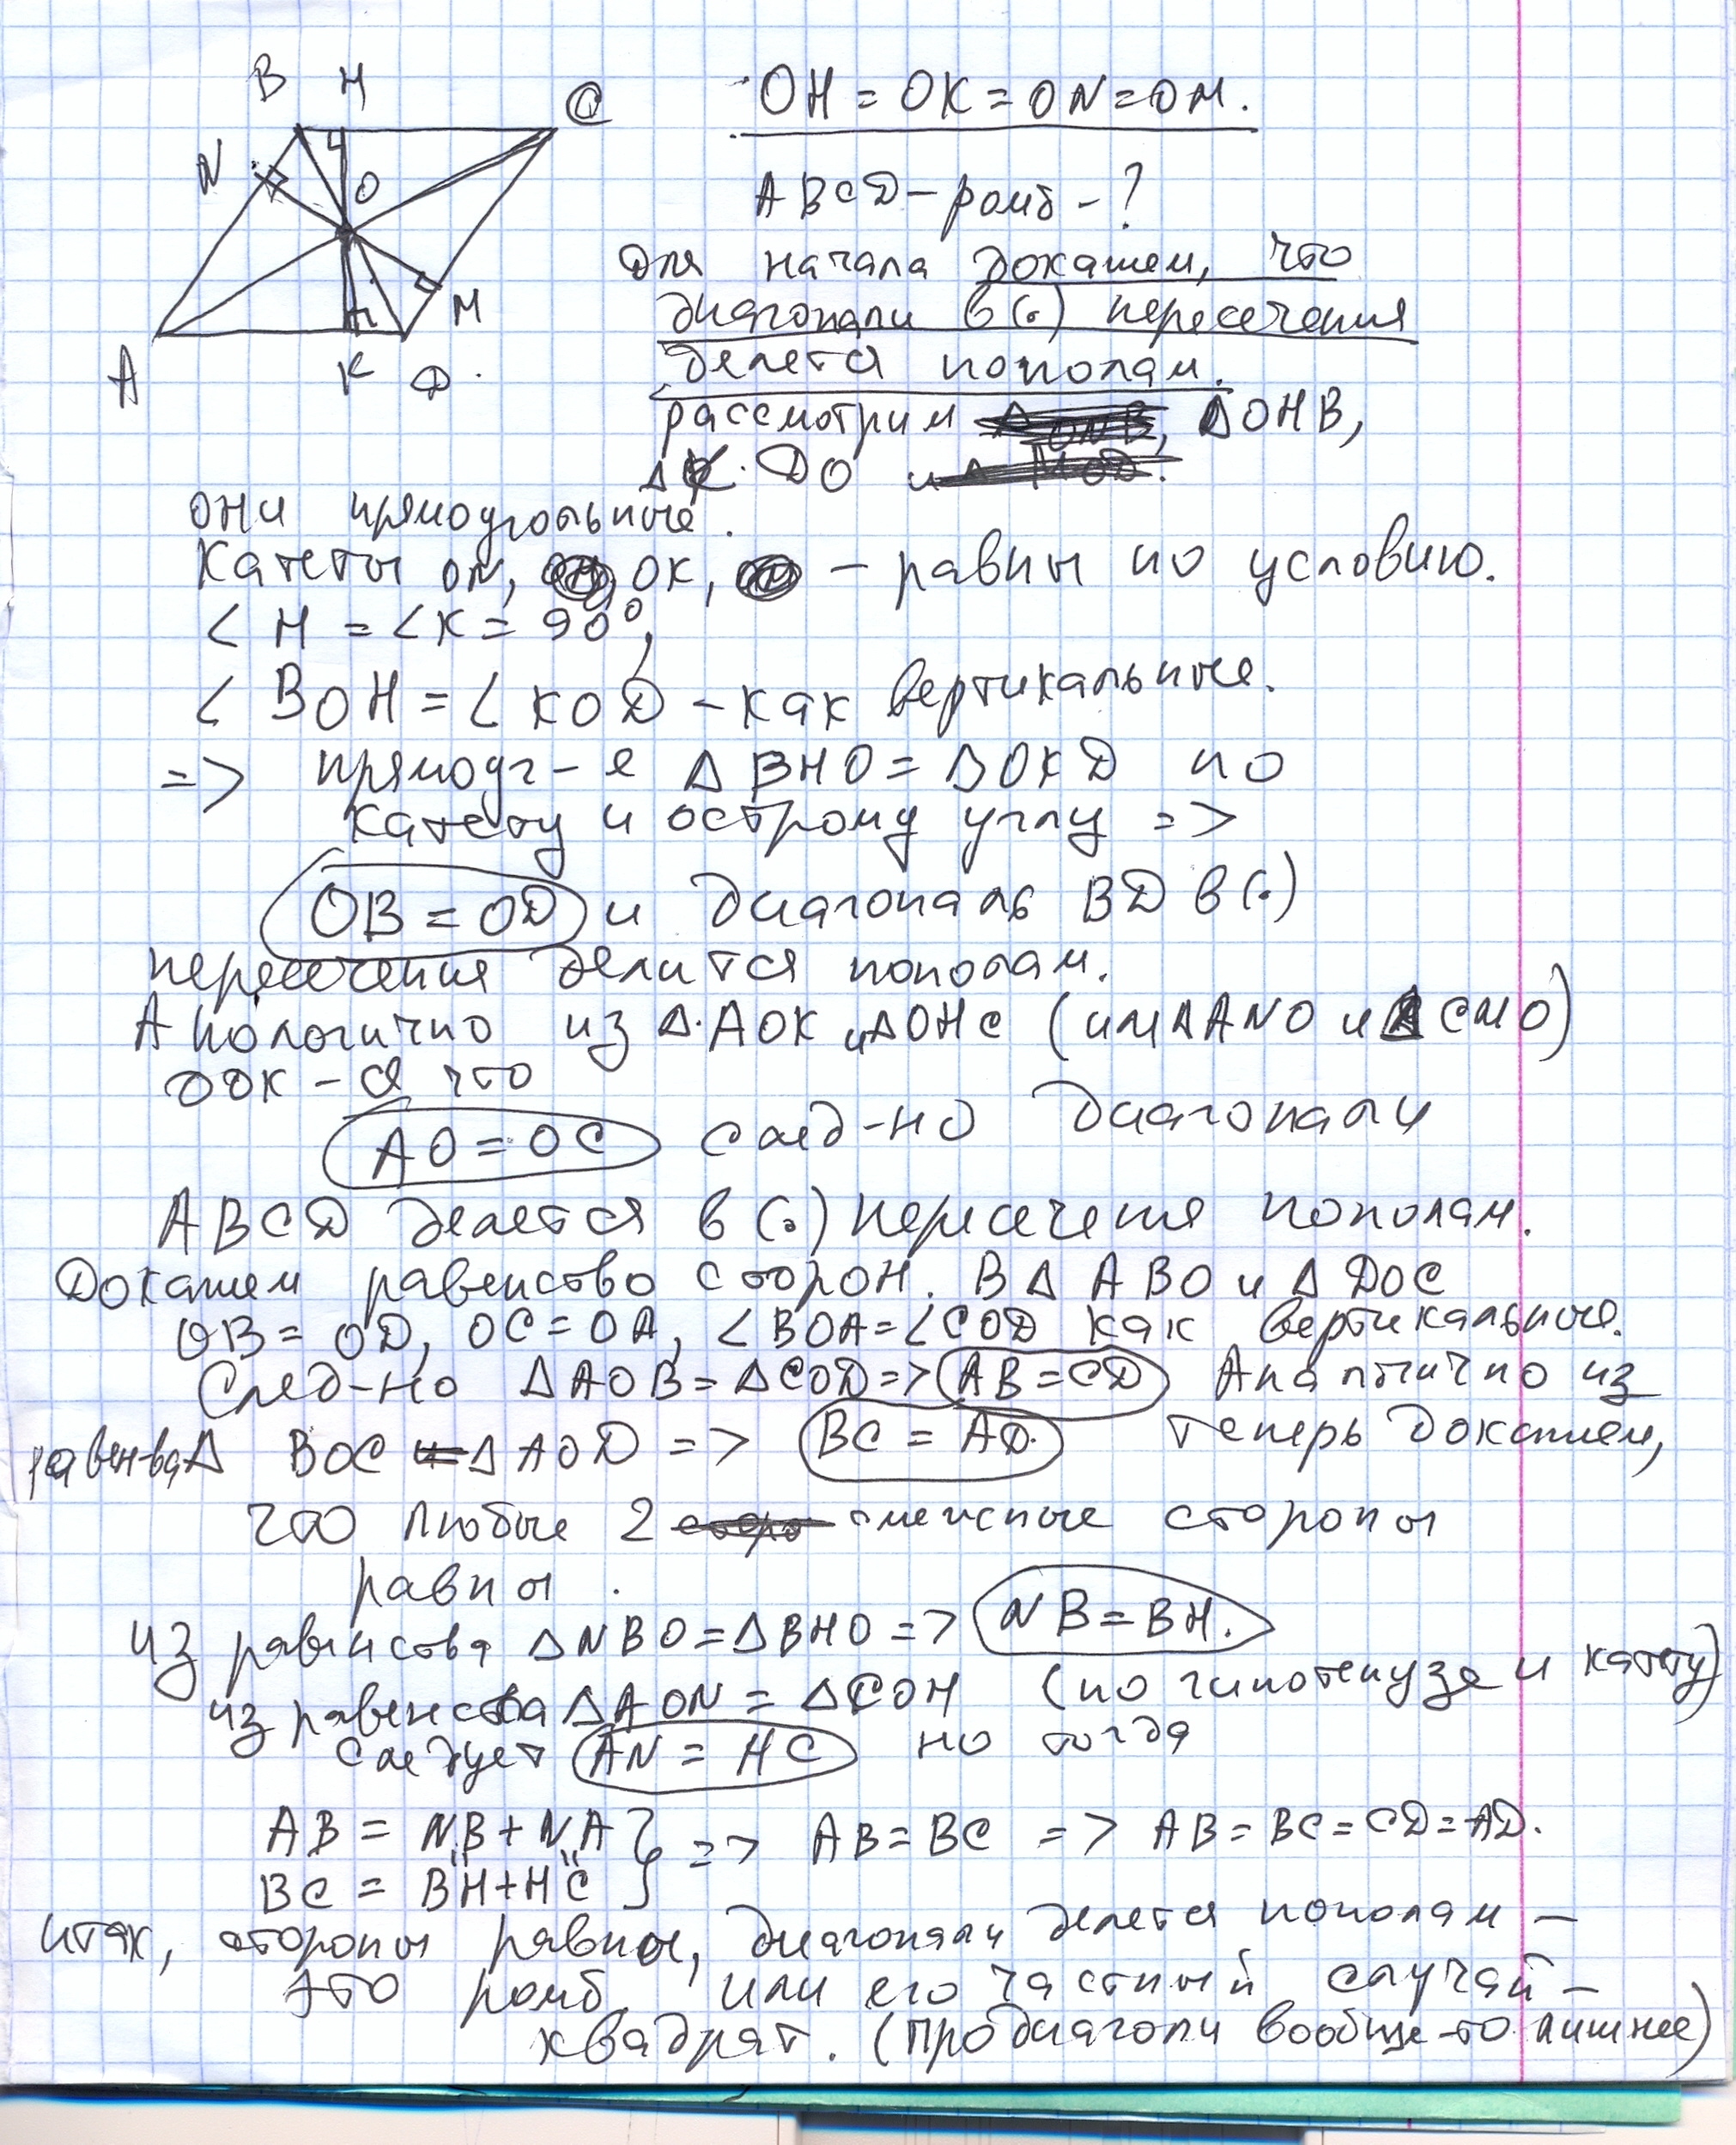 B H C
N O
A K D M
OH = OK = ON = OM.
ABCD – ромб – ?
Для начала докажем, что
диагонали в (.) пересечения
делется пополам.
рассмотрим ΔOHB,
ΔKDO
они прямоугольные.
Катеты ON, OK, – равны по условию.
∠H = ∠K = 90°,
∠BOH = ∠KOD – как вертикальные.
=> прямоуг-е ΔBHO = ΔOKD по
катету и острому углу =>
OB = OD и диагональ BD в (.)
пересечения делится пополам.
Анологично из Δ AOK и ΔOHC (или ΔANO и ΔCMO)
док-я что
AO = OC след-но диагонали
ABCD делется в (.) пересечения пополам.
Докажем равенство сторон. В Δ ABO и Δ DOC
OB = OD, OC = OA, ∠BOA = ∠COD как вертикальные.
След-но ΔAOB = ΔCOD => AB = CD Аналогично из
равен-ва Δ BOC = Δ AOD => BC = AD. Теперь докажем,
что любые 2 смежные стороны
равны.
из равенства ΔNBO = ΔBHO => NB = BH.
из равенства ΔAON = ΔCOH (по гипотенузе и катету)
следует AN = HC но тогда
AB = NB + NA } => AB = BC => AB = BC = CD = AD.
BC = BH + HC
итак, стороны равны, диагонали делется пополам –
это ромб, или его частный случай –
квадрат. (про диаголи вообще-то лишнее)